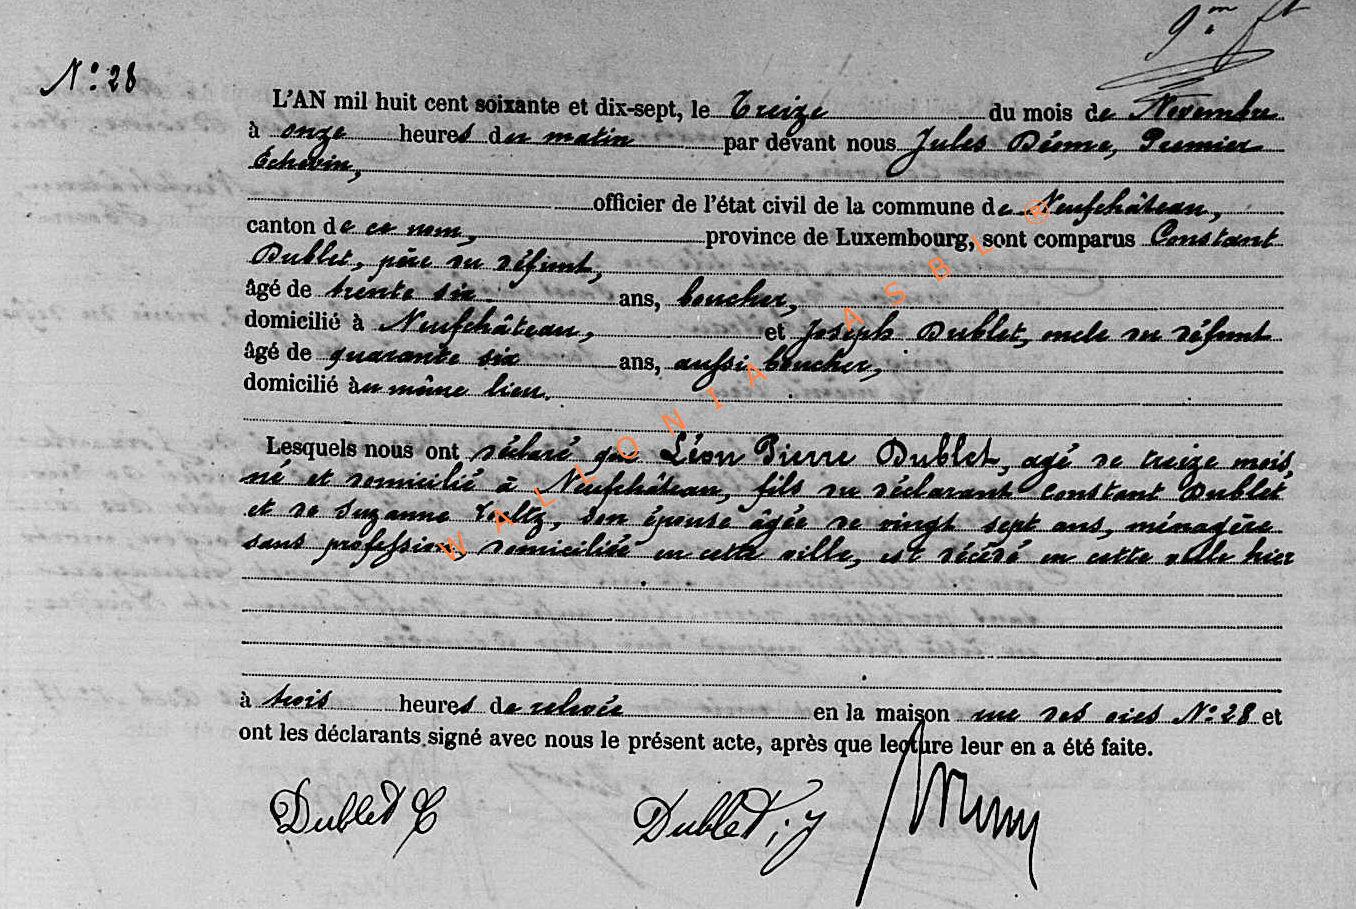 N° 28
L'AN mil huit cent soixante et dix-sept, le Treize du mois de Novembre
à onze heures du matin par devant nous Jules Premier
Echevin,
officier de l'état civil de la commune de Neufchâteau,
canton de ce nom, province de Luxembourg, sont comparus Constant
Dublet, père du défunt,
âgé de trente six ans, boucher,
domicilié à Neufchâteau, et Joseph Dublet, oncle du défunt
âgé de quarante six ans, aussi boucher,
domicilié au même lieu.
Lesquels nous ont déclaré que Léon Pierre Dublet, agé de treize mois,
né et domicilié à Neufchâteau, fils du déclarant Constant Dublet
et de Suzanne son épouse âgée de vingt sept ans, ménagère
sans profession, domiciliée en cette ville, est décédé en cette ville hier
à trois heures de relevée en la maison rue des oies N° 28 et
ont les déclarants signé avec nous le présent acte, après que lecture leur en a été faite.
Dublet C Dublet, j
WALLONIA ASBL ®